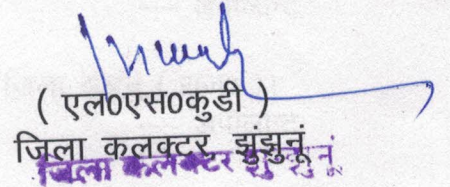 ( एल0एस0कुडी )
जिला कलक्टर झुंझुनूं
जिला कलक्टर झुंझुनूं